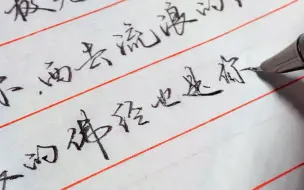 而去流浪的
的佛经也是你